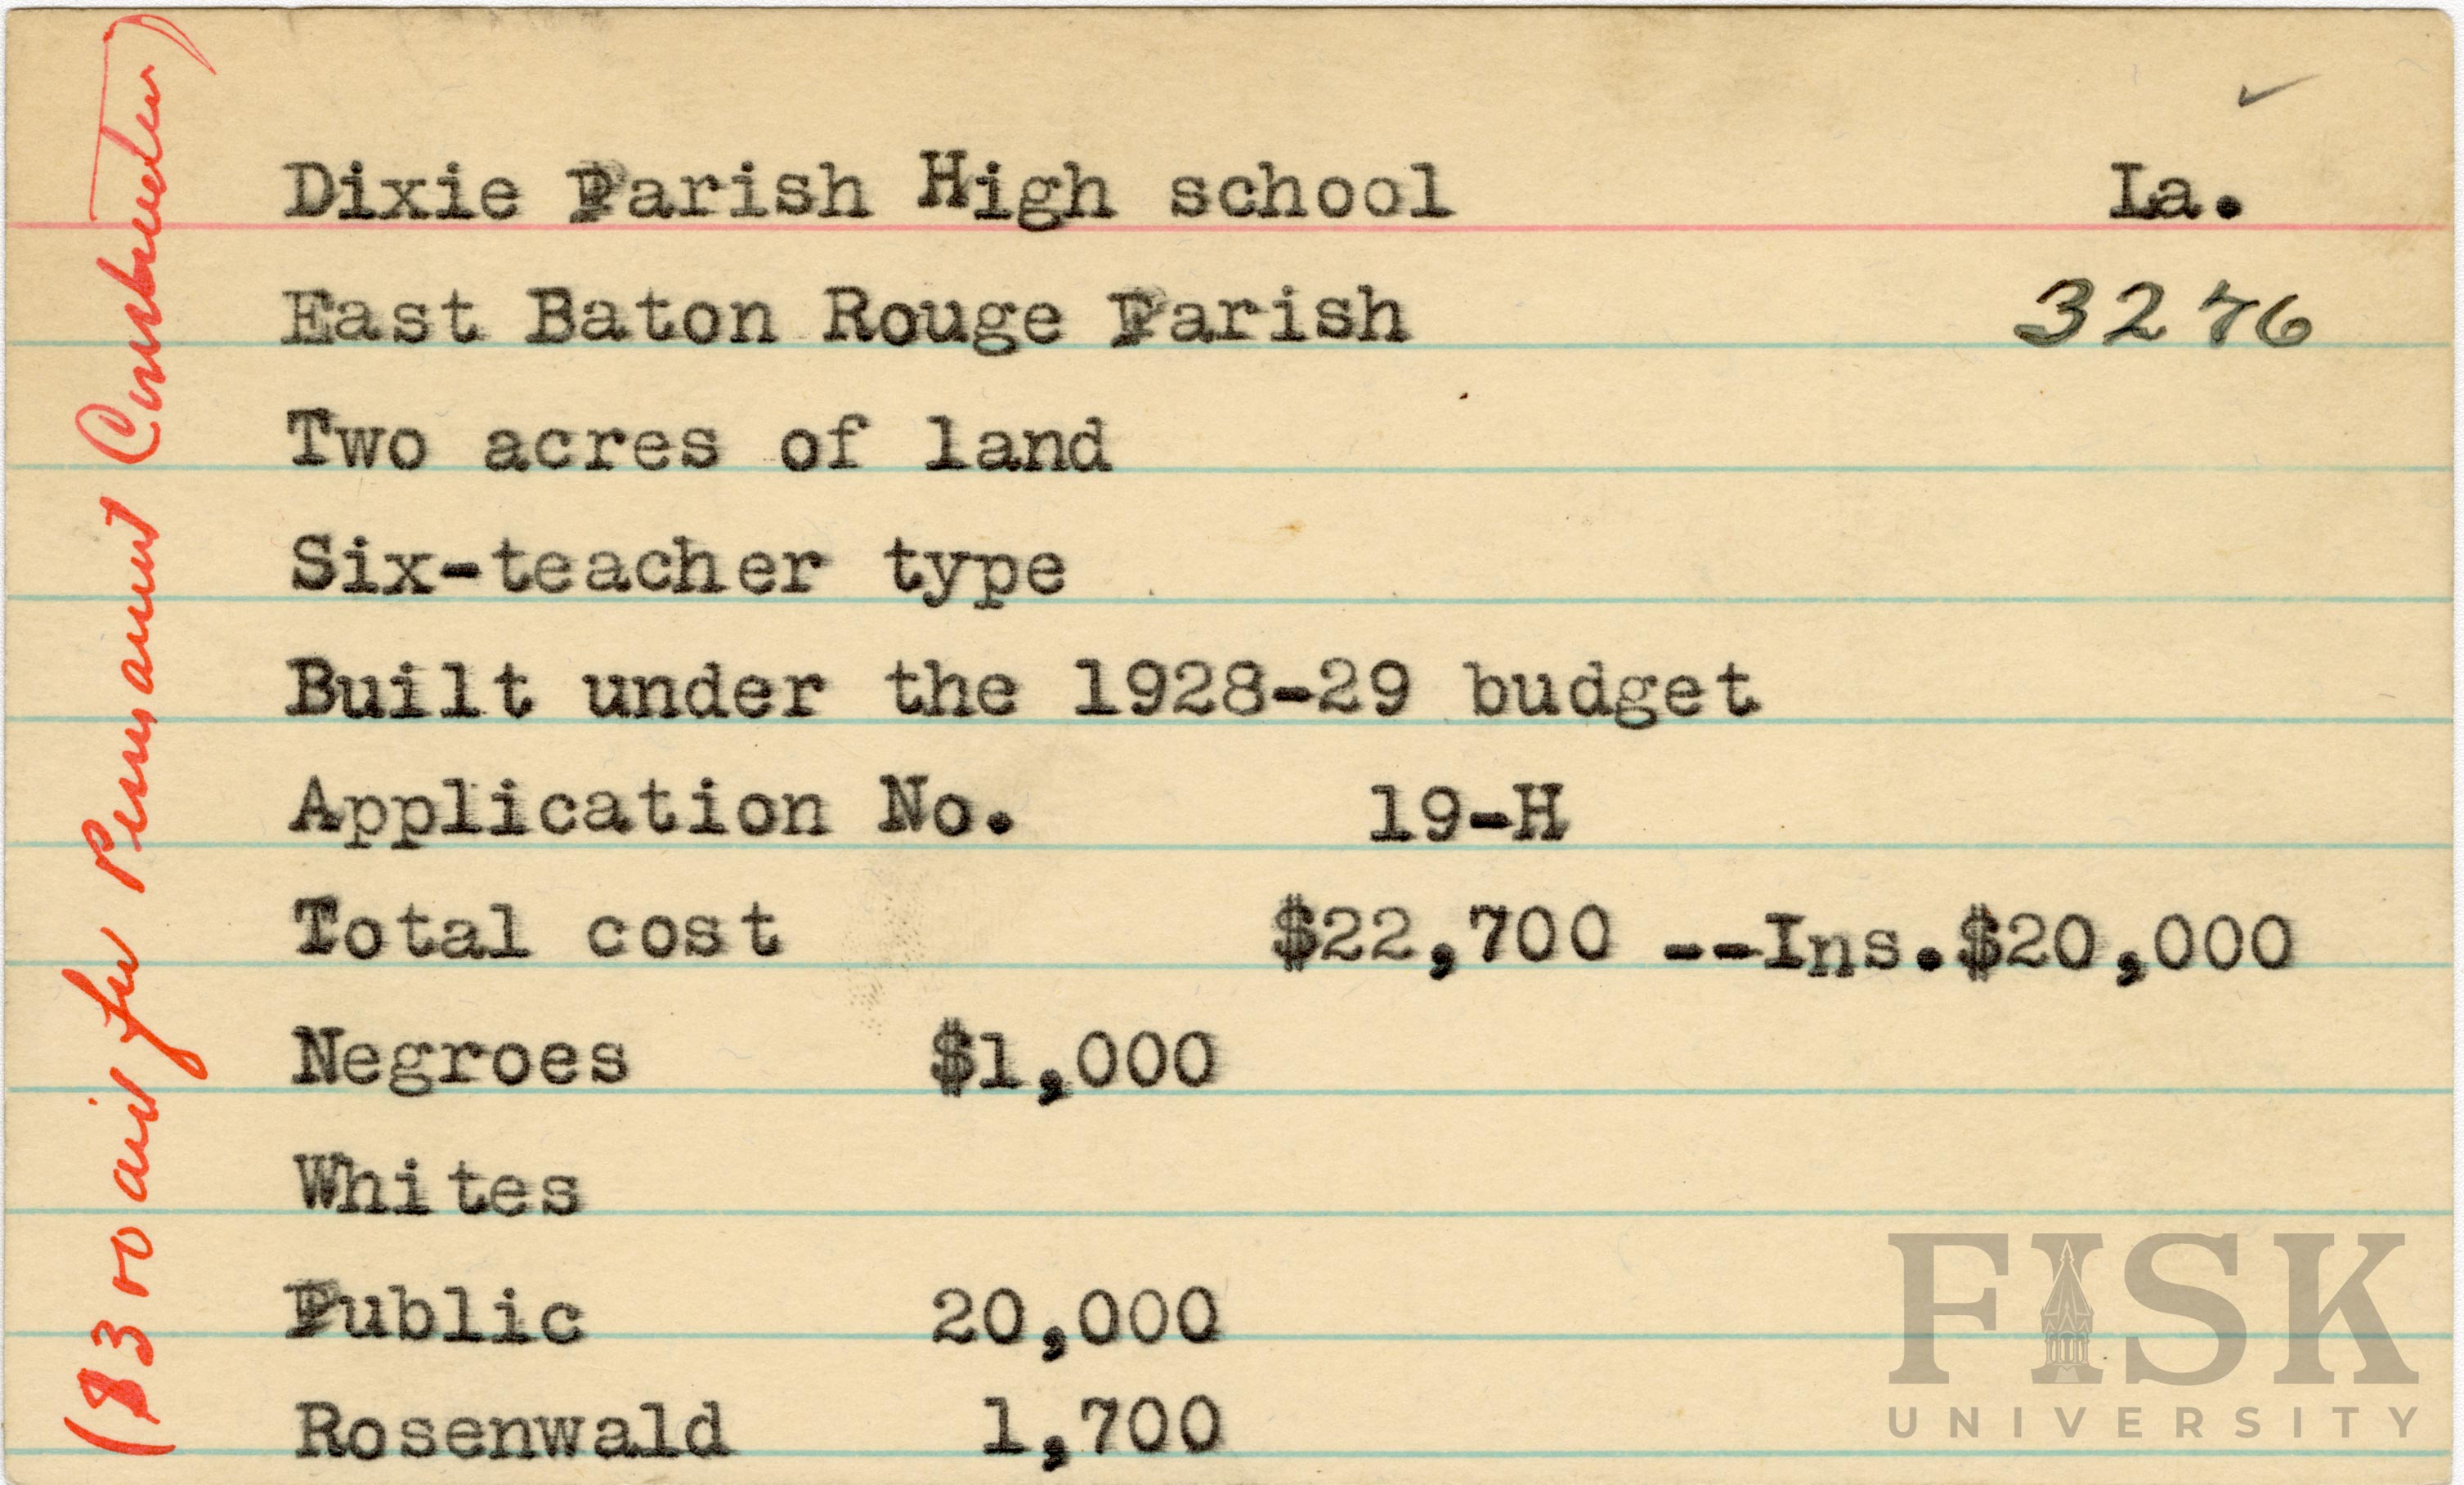 Dixie Parish High school La.
East Baton Rouge Parish 3276
Two acres of land
Six-teacher type
Built under the 1928-29 budget
Application No. 19-H
Total cost $22,700 --Ins.$20,000
Negroes $1,000
Whites
Public 20,000
Rosenwald 1,700
($300 aid for Permanent Construction)
FISK
UNIVERSITY